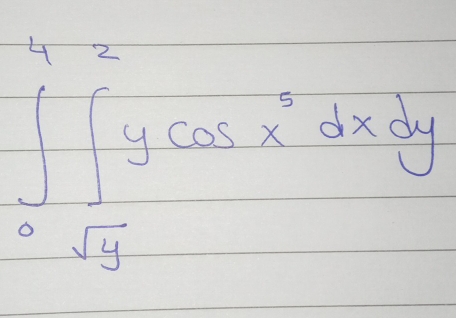 ∫₀⁴ ∫_√y² y cos x⁵ dx dy